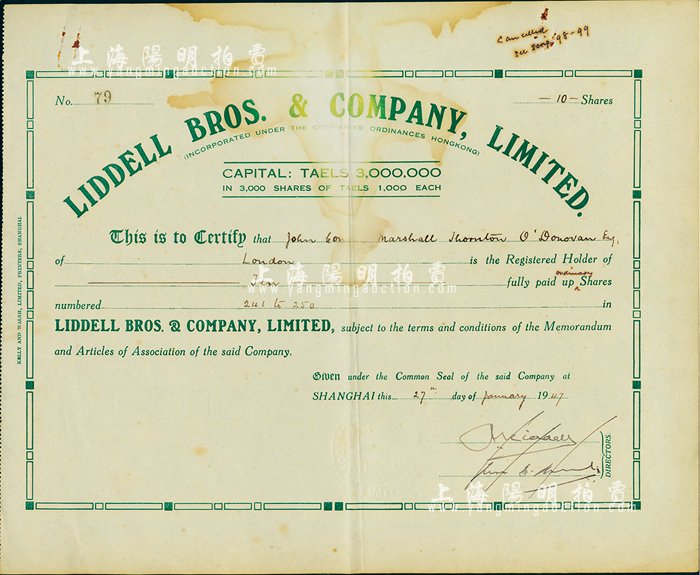 Cancelled
see scrips 98-99
No. 79
-10- Shares
LIDDELL BROS. & COMPANY, LIMITED.
(INCORPORATED UNDER THE COMPANIES ORDINANCES HONGKONG)
CAPITAL: TAELS 3,000,000
IN 3,000 SHARES OF TAELS 1,000 EACH
This is to Certify that John Marshall Thornton O'Donovan Esq.
of London is the Registered Holder of
ordinary
Ten fully paid up Shares
numbered 241 to 250 in
LIDDELL BROS. & COMPANY, LIMITED, subject to the terms and conditions of the Memorandum
and Articles of Association of the said Company.
Given under the Common Seal of the said Company at
SHANGHAI this 27th day of January 1947
DIRECTORS
KELLY AND WALSH, LIMITED, PRINTERS, SHANGHAI.
上海陽明拍賣
www.yangmingauction.com
上海陽明拍賣
www.yangmingauction.com
上海陽明拍賣
www.yangmingauction.com